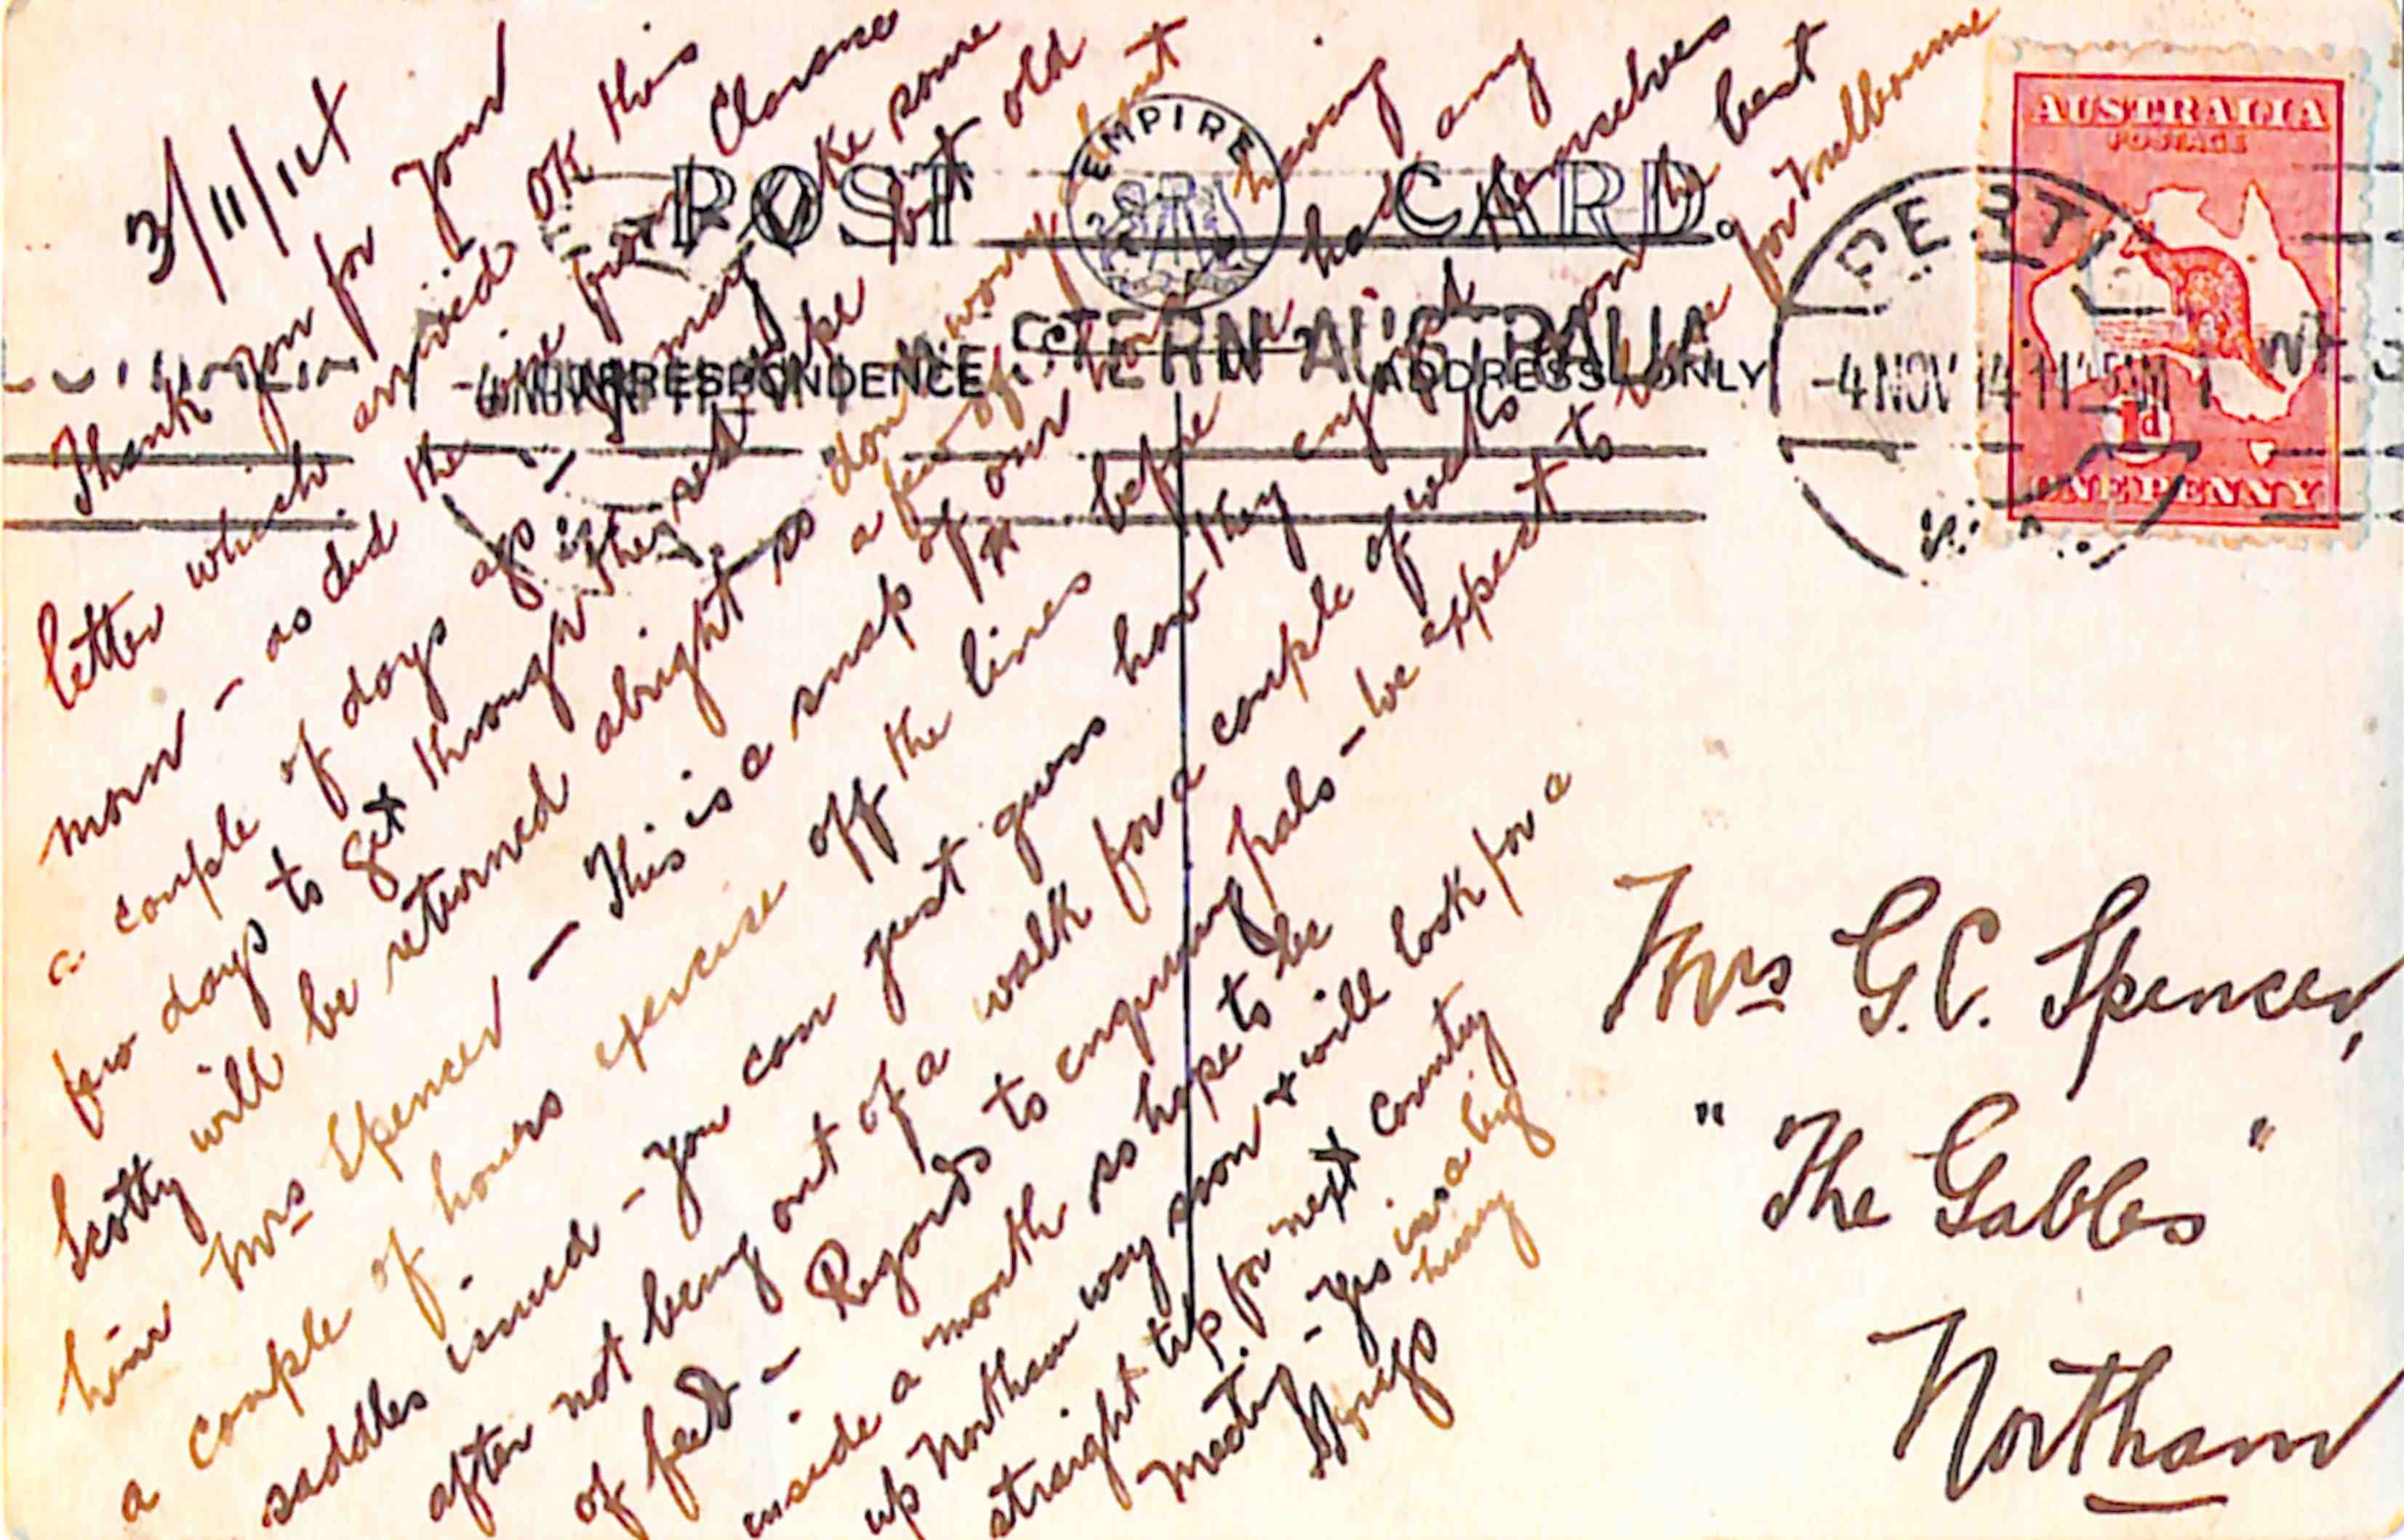 3/11/14
POST CARD.
EMPIRE
CORRESPONDENCE
ADDRESS ONLY
WESTERN AUSTRALIA
PERTH
-4 NOV 14 11
AUSTRALIA
POSTAGE
1d
ONE PENNY
Thank you for your
letter which arrived OK this
morn - as did the one from Clarence
a couple of days ago - it may take some
few days to get through the red tape but old
Scotty will be returned alright so don't worry about
him Mrs Spencer - This is a snap of a few of having
a couple of hours exercise off the lines before
saddles issued - you can just guess how they enjoyed themselves
after not being out of a walk for a couple of weeks on the best
of feed - Regards to enquiring pals - we expect to leave for Melbourne
inside a month so hope to be
up Northam way soon + will look for a
straight tip for next County
Meeting - Yrs in a big
hurry
Mrs G.C. Spencer,
"The Gables"
Northam